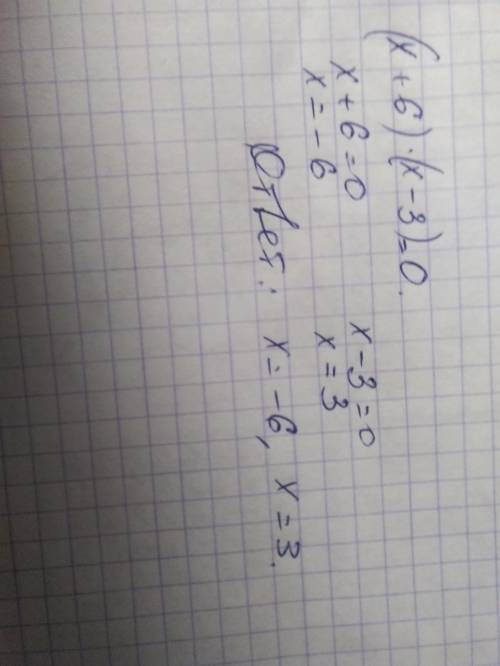 (x + 6) · (x - 3) = 0.
x + 6 = 0 x - 3 = 0
x = - 6 x = 3
Ответ: x = -6, x = 3.